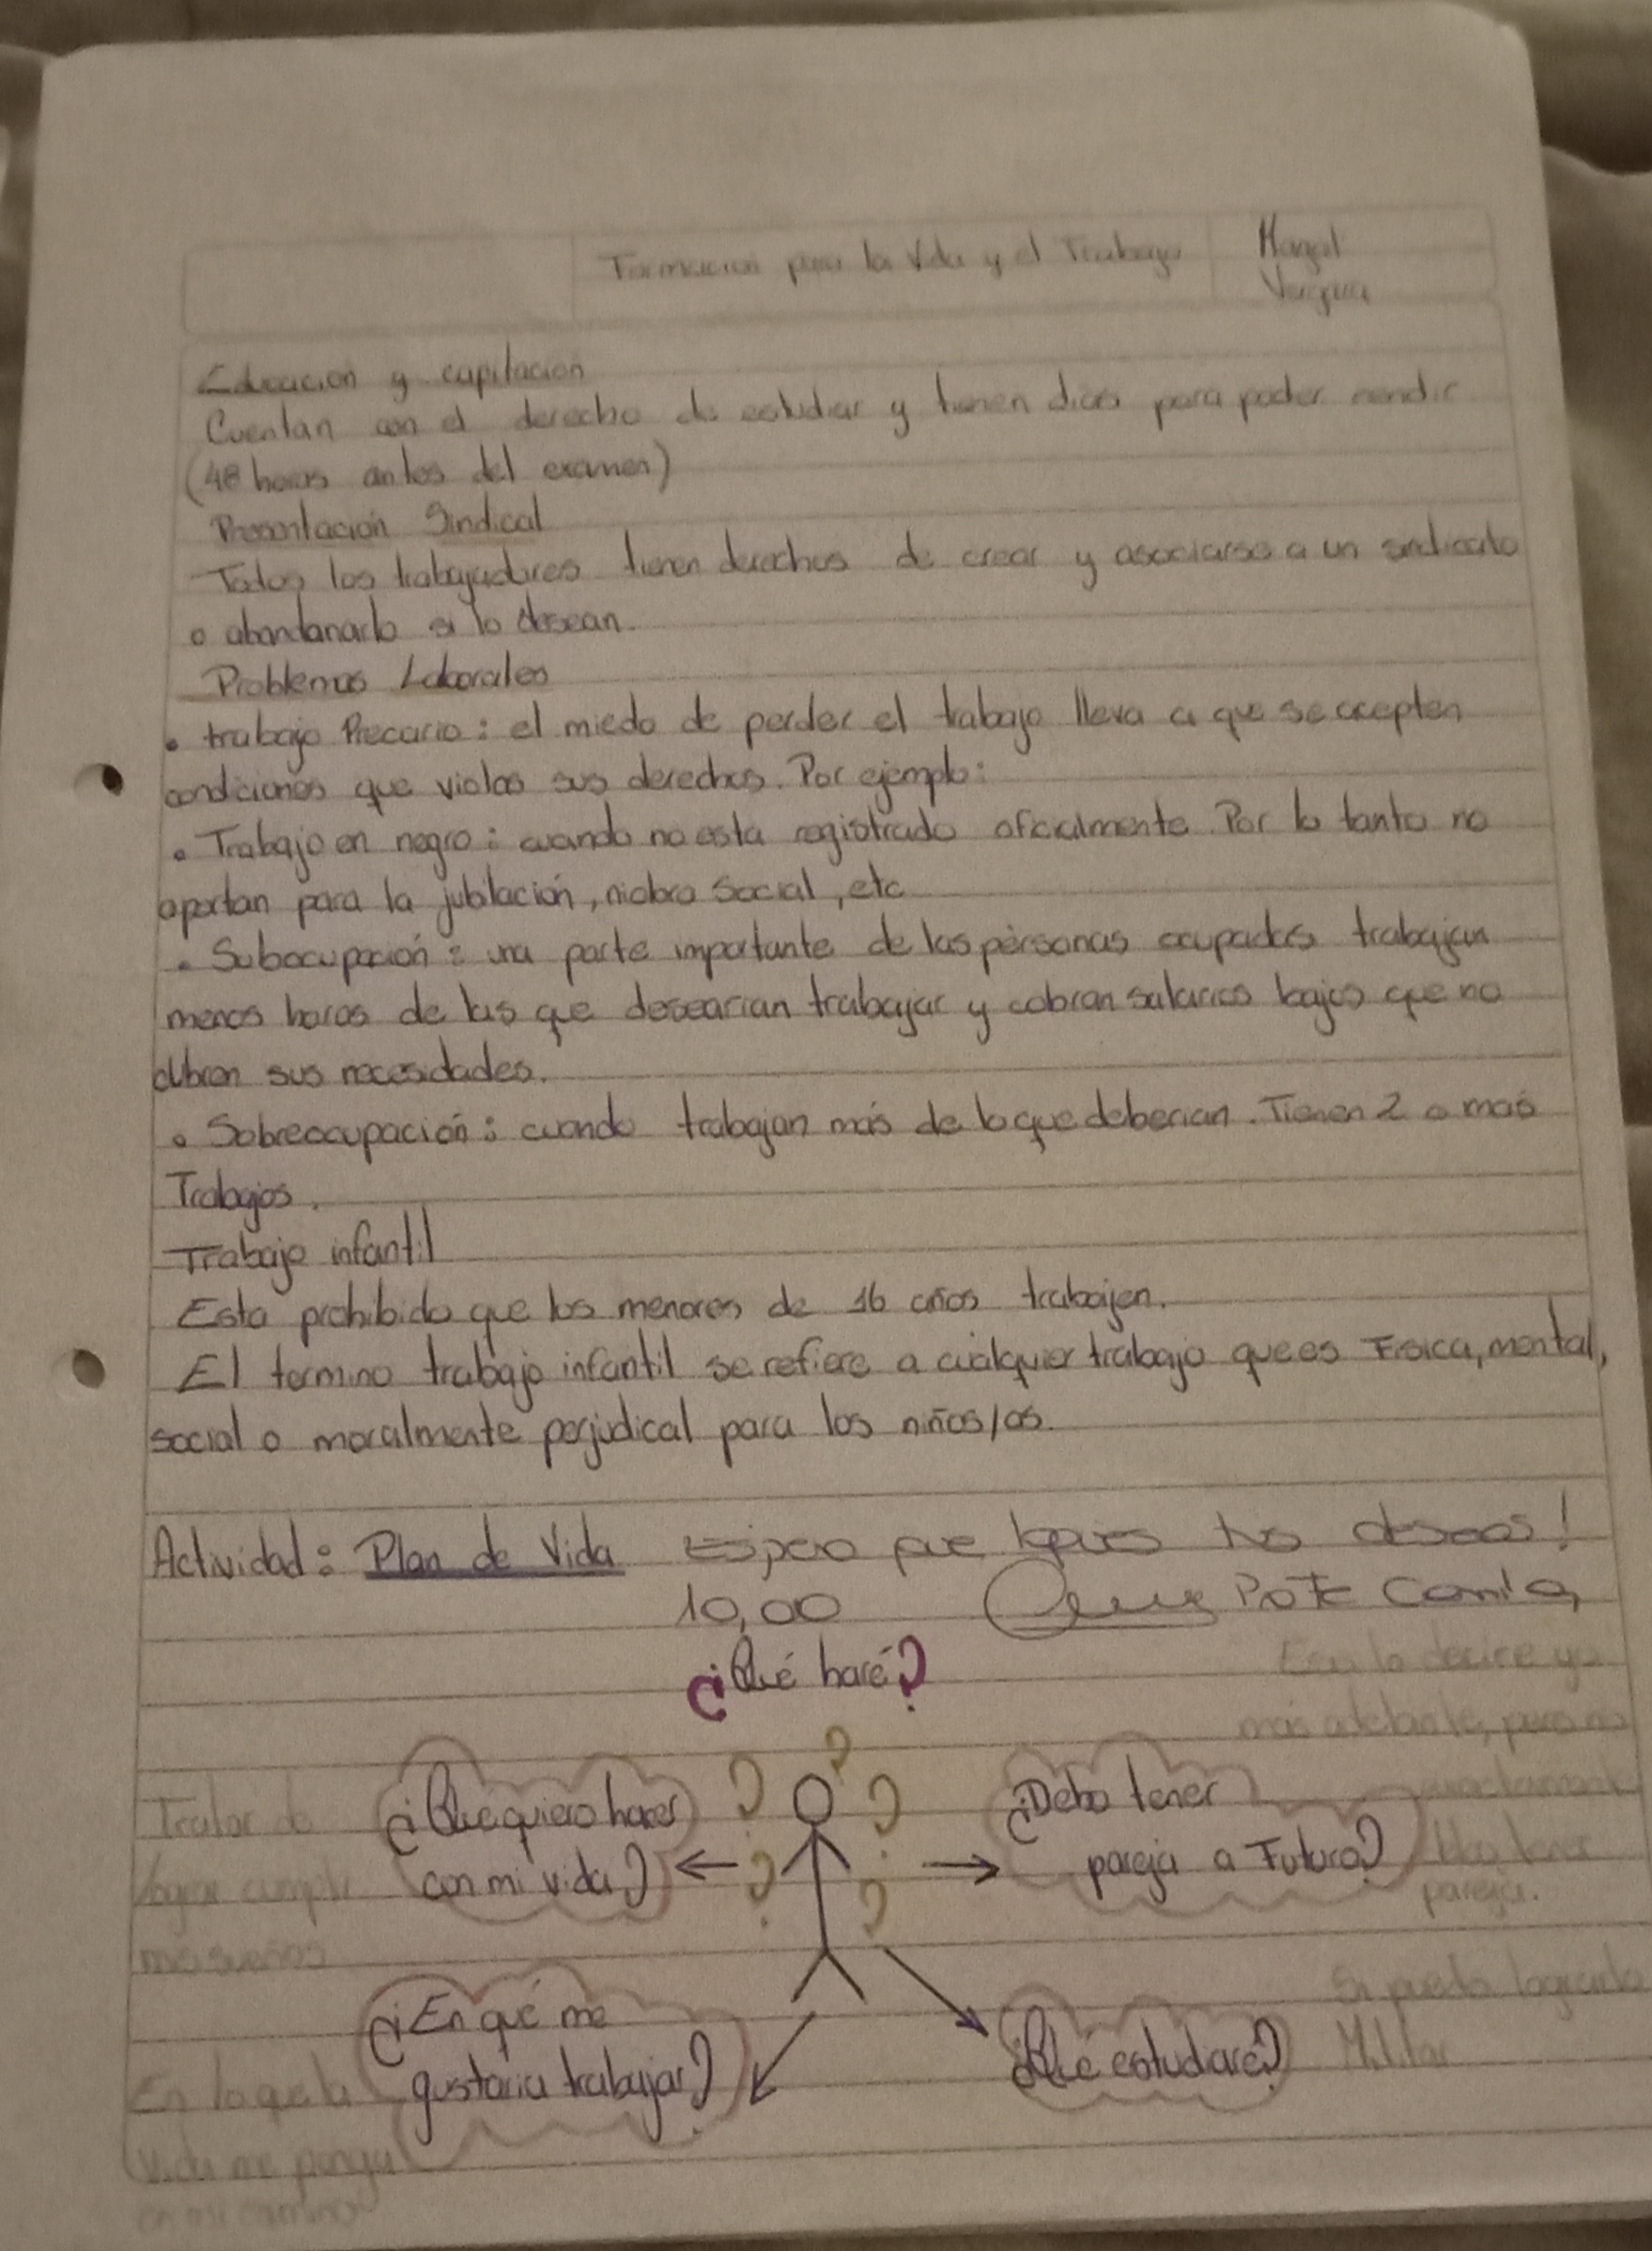 Formacion para la Vida y el Trabajo
Educacion y capitacion
Cuentan con el derecho de estudiar y tienen dias para poder rendir
(48 horas antes del examen)
Presentación Sindical
Todos los trabajadores tienen derechos de crear y asociarse a un sindicato
o abandanarlo si lo desean.
Problemas Laborales
• trabajo Precario: el miedo de perder el trabajo lleva a que se accepten
condiciones que violas sus derechos. Por ejemplo:
• Trabajo en negro: cuando no esta registrado oficialmente. Por lo tanto no
aportan para la jubilación, niobra Social, etc
• Subocupación: una parte importante de las personas ocupadas trabajan
menos horas de las que desearian trabajar y cobran salarios bajos que no
cubren sus necesidades.
• Sobreocupación: cuando trabajan más de lo que deberian. Tienen 2 o mas
Trabajos.
Trabajo infantil
Esta prohibido que los menores de 16 años trabajen.
El termino trabajo infantil se refiere a cualquier trabajo que es Fisica, mental,
social o moralmente perjudical para los niños/as.
Actividad: Plan de Vida Espero que logres tus deseos!
10,00 Camila
¿Qué haré?
Eso lo decire yo
más adelante, pero no
Tratar de
lograr cumplir
mis sueños
¿Que quiero hacer
con mi vida?
¿Debo tener
pareja a Futuro?
tener
pareja.
¿En qué me
gustaria trabajar?
En lo que la
vida me ponga
en mi camino
¿Que estudiare?
Si puedo lograrlo
Militar